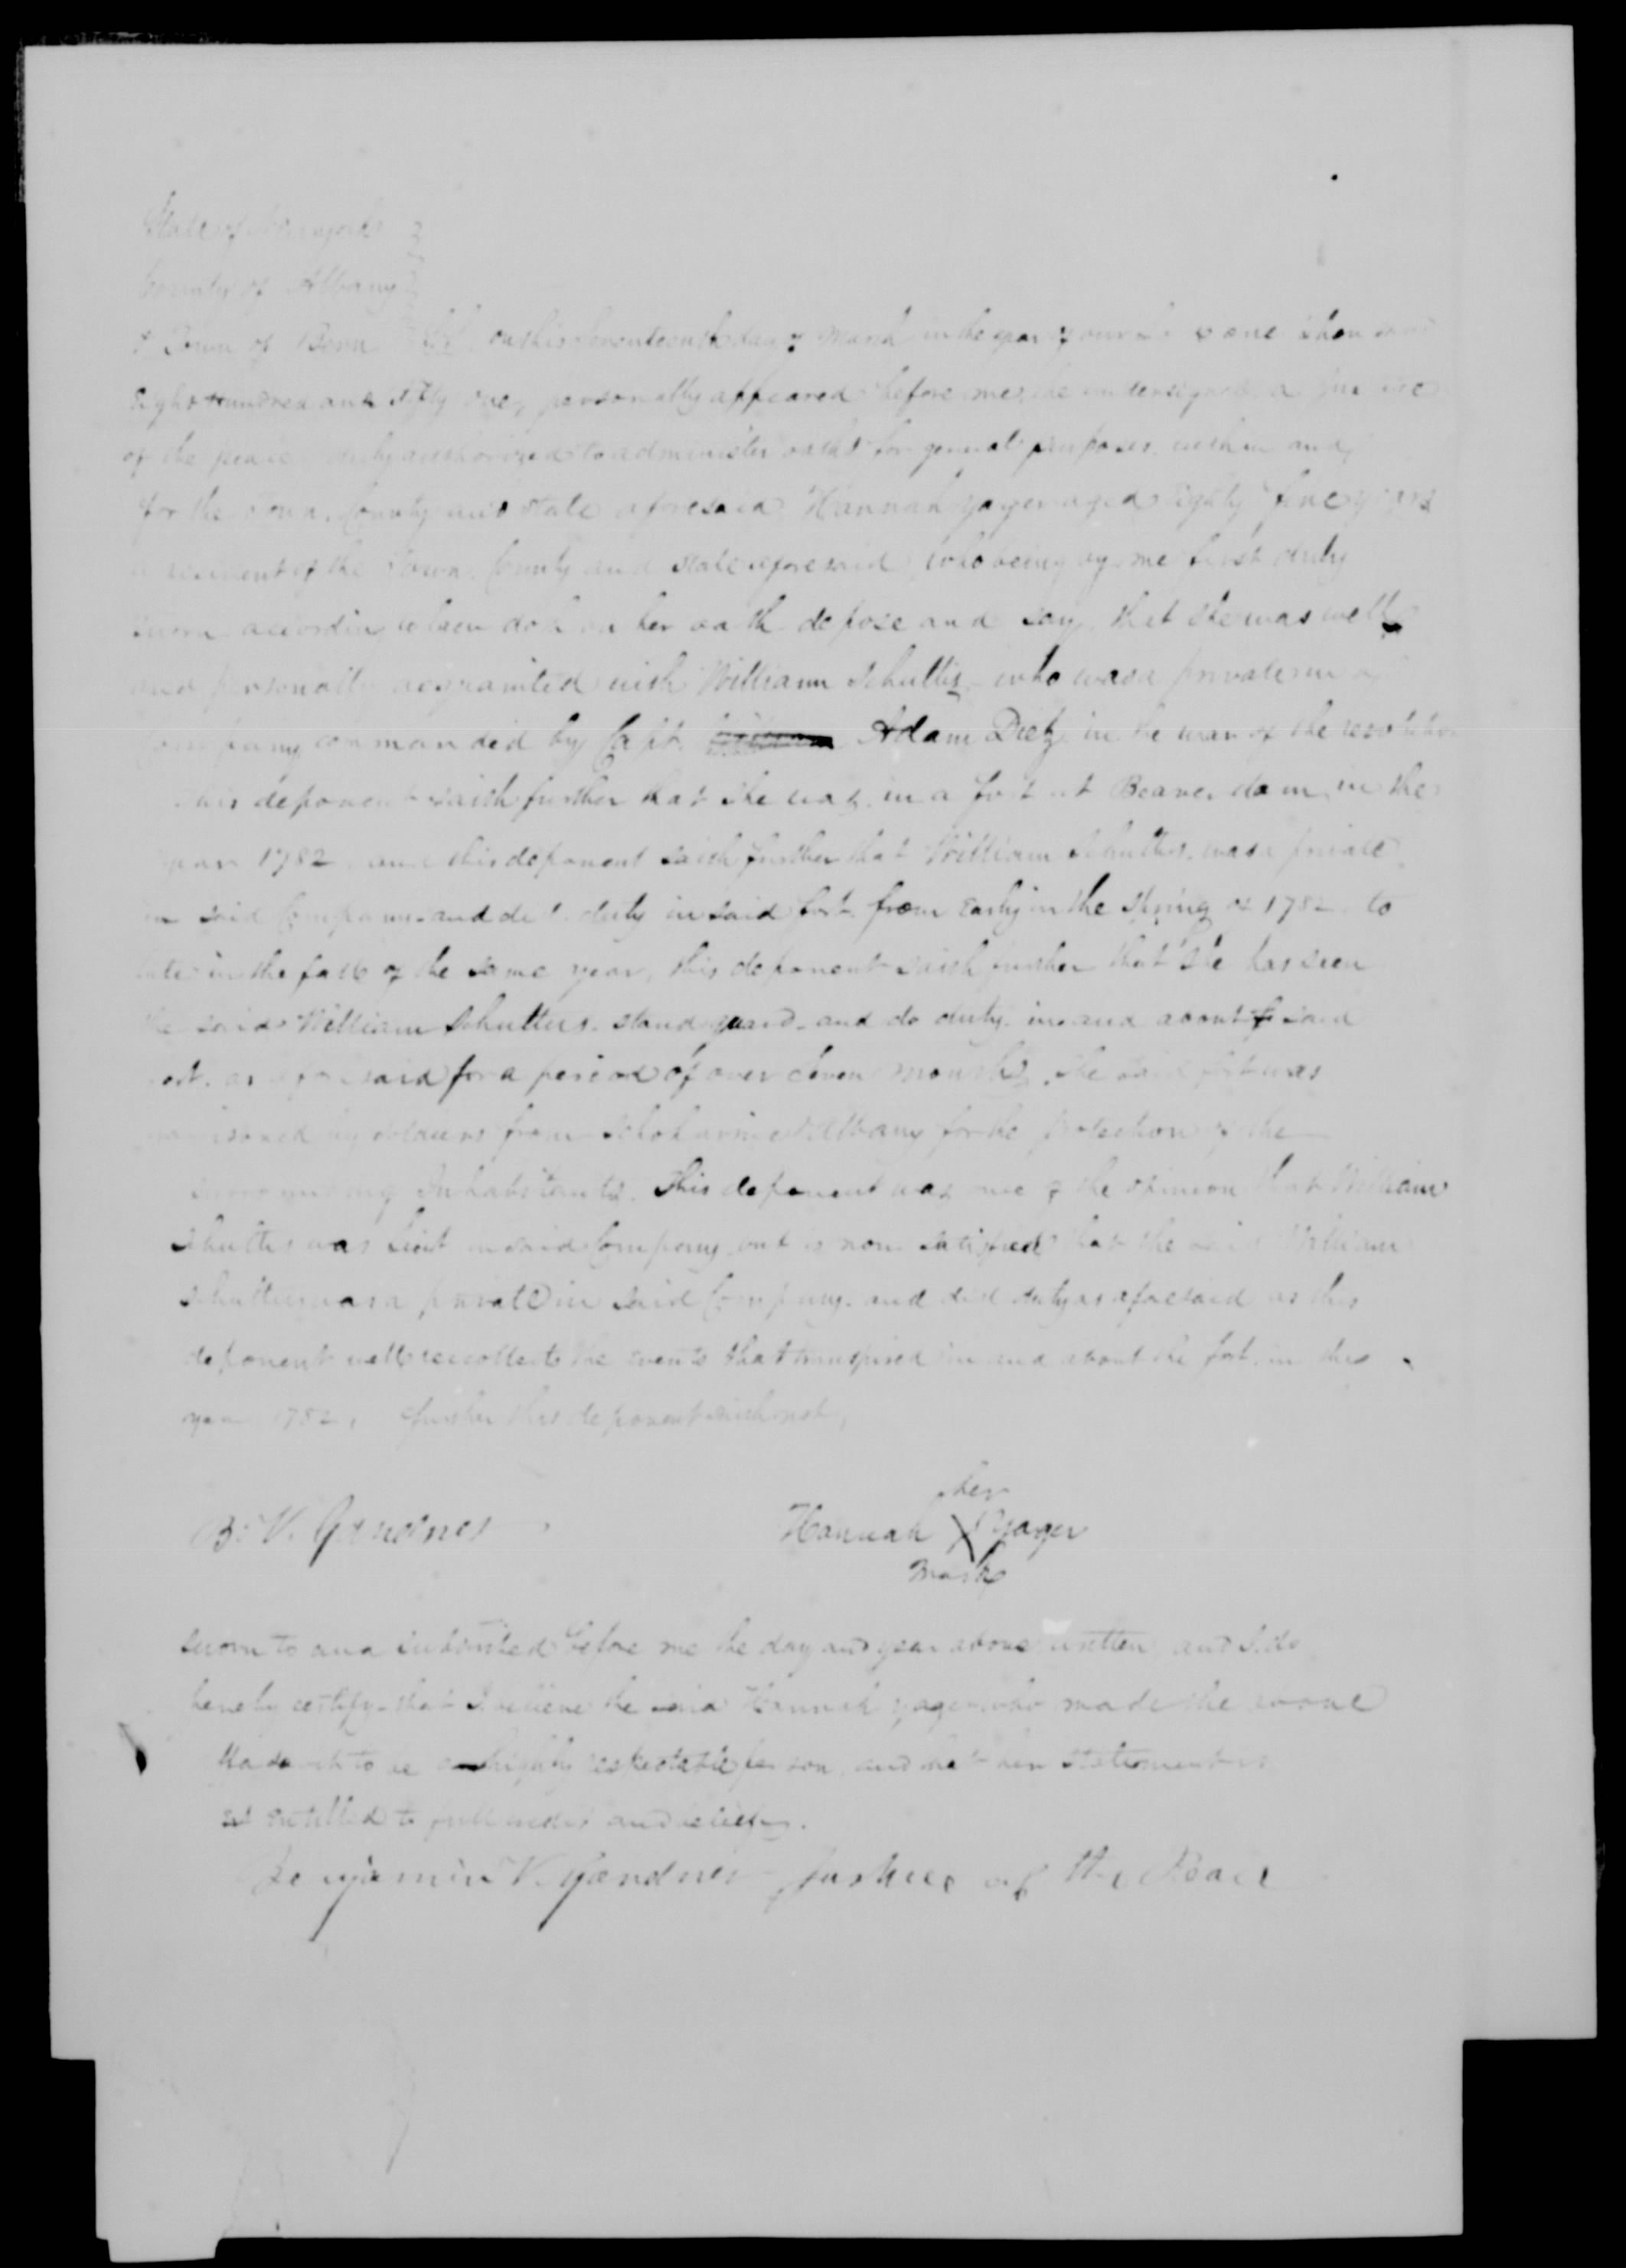 State of New york }
County of Albany }
& Town of Bern } SS. on this seventeenth day of March in the year of our one thousand
eight hundred and fifty one, personally appeared before me, the undersigned, a Justice
of the peace duly authorized to administer oaths for general purposes, within and
for the Town, County and State aforesaid Hannah Yager aged eighty five years
a resident of the Town, County and State aforesaid who being by me first duly
sworn according to law doth on her oath depose and say, that she was well
and personally acquainted with William Schultis who was a private in a
Company commanded by Capt. Adam Dietz in the war of the revolution
this deponent saith further that she was in a fort at Beaverdam in the
year 1782, and this deponent saith further that William Shulters was a private
in said Company and did duty in said fort from Early in the Spring of 1782 to
late in the fall of the same year, this deponent saith further that she has seen
the said William Shulters stand guard and do duty in and about said
fort as aforesaid for a period of over seven months, the said fort was
garrisoned by soldiers from Schoharie & Albany for the protection of the
surrounding Inhabitants. This deponent was once of the opinion that William
Shulters was Lieut in said Company but is now satisfied that the said William
Shulters was a private in said Company and did duty as aforesaid as this
deponent well reccollects the events that transpired in and about the fort in the
year 1782, further this deponent saith not,
her
B. V. Gardner Hannah X Yager
mark
Sworn to and subscribed before me the day and year above written and I do
hereby certify that I believe the said Hannah Yager who made the above
to be a highly respectable person and that her statement is
entitled to full credit and belief.
Benjamin V. Gardner Justice of the Peace